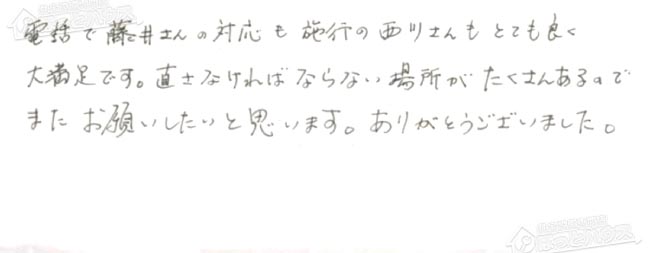 電話で藤井さんの対応も施行の西川さんもとても良く
大満足です。直さなければならない場所がたくさんあるので
またお願いしたいと思います。ありがとうございました。